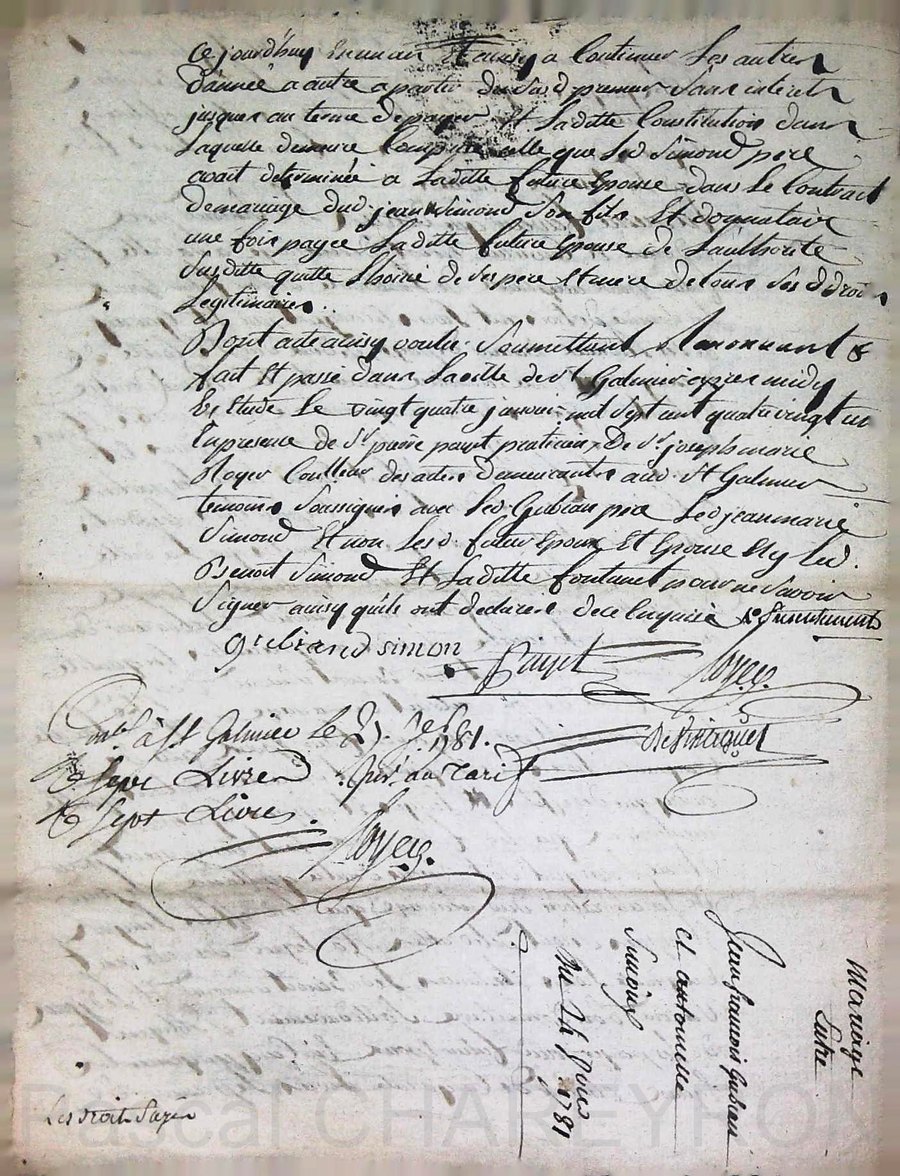 Ce jourd'huy en un an Et ainsy a Continuer Les autres
d'année a autre a partir du susd premier Sans interets
jusques au terme de payer Et Laditte Constitution dans
Laquelle demeure Comprise celle que Led Simond pere
avait determinée a Laditte future Epouse dans Le Contract
de mariage dud. jean Simond Son fils Et donnataire
une fois payée Laditte future Epouse de L'authorité
Susditte quitte L'hoirie de Ses pere Et mere de tous Ses d droits
Legitimaires.
Dont acte ainsy voulu Soumettant Renonnant &
fait Et passé dans La ville de St Galmier apres midy
En Etude Le vingt quatre janvier mil Sept cent quatre vingt un
En presence de Sr pierre payet praticien, De Sr joseph marie
Royer Conlleur des actes demeurants aud. St Galmier
temoins Soussignés avec Led Gubian pere Led jean marie
Simond Et non Lesd. futur Epoux Et Epouse Ny Led.
Benoit Simond Et Laditte fontanet pour ne Savoir
Signer ainsy qu'ils ont declarés de ce Enquis
gibiand simon
Payet Royer
à St Galmier le 1781.
Sept Livres Suiv. au Tarif
Sept Livres
Royer
Mariage
Entre
Jean françois Gubian
et antoinette
Simond
Du 24 janvier 1781
Les droit Payés
Pascal CHAREYRON